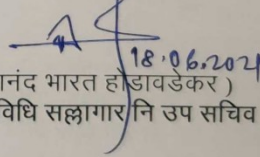 18.06.202
नंद भारत होडावडेकर )
विधि सल्लागार नि उप सचिव